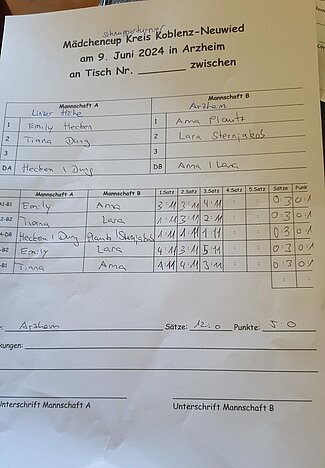 Schnupperturnier
Mädchencup Kreis Koblenz-Neuwied
am 9. Juni 2024 in Arzheim
an Tisch Nr. ______ zwischen
Mannschaft A Mannschaft B
Linzer Höhe Arzheim
1 Emily Hecken 1 Ama Plautz
2 Tiana Dung 2 Lara
3 3
DA Hecken / Dung DB Ama / Lara
Mannschaft A Mannschaft B 1.Satz 2.Satz 3.Satz 4.Satz 5.Satz Sätze Punk
A1-B1 Emily Ama 3:11 3:11 4:11 : : 0:3 0:1
2-B2 Tiana Lara 1:11 3:11 2:11 : : 0:3 0:1
A-DB Hecken / Dung 1:11 1:11 1:11 : : 0:3 0:1
-B2 Emily Lara 4:11 3:11 5:11 : : 0:3 0:1
-B1 Tiana Ama 1:11 4:11 3:11 : : 0:3 0:1
: :
: Arzheim Sätze: 12:0 Punkte: 5:0
kungen:
Unterschrift Mannschaft A Unterschrift Mannschaft B